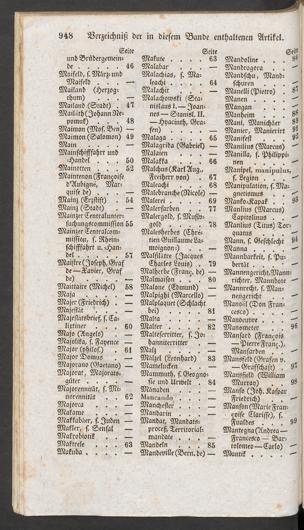 948 Verzeichniß der in diesem Bande enthaltenen Artikel.
Seite
und Brüdergemein-
de . . . . 46
Maifeld, s. März und
Maifeld —
Mailand (Herzog-
thum)
Mailand (Stadt) . 47
Mailáth (Johann Ne-
pomuk) . . . 48
Maimon (Mos. Ben) —
Maimon (Salomon) 49
Main
Mainschifffahrt und
-Handel . . . 50
Mainotten . . . 52
Maintenon (Françoise
d'Aubigné, Mar-
quise de) . . . —
Mainz (Erzstift) . 54
Mainz (Stadt) . . —
Mainzer Centralunter-
suchungscommission 55
Mainzer Centralcom-
mission, s. Rhein-
schifffahrt u. Han-
del . . . . 57
Maistre (Joseph, Graf
de — Xavier, Graf
de) . . . . —
Maittaire (Michel) 58
Maja . . . . —
Majer (Friedrich) . —
Majestät . . . —
Majestätsbrief, s. Ca-
lixtiner . . . 60
Majo (Angelo) . . —
Majolika, s. Fayence —
Major (philos.) . 61
Major Domus . . —
Majorano (Gaetano) —
Majorat, Majorats-
güter . . . . —
Majorennität, s. Mi-
norennität . . 62
Majorca . . . —
Makame . . . —
Makkabäer, s. Juden —
Makler, s. Sensal —
Makrobiotik . . —
Makrele . . . 63
Makuba . . . —
Seite
Makute . . . 63
Malabar . . . —
Malachias, s. Ma-
leachi . . . 64
Malachit . . . —
Malachowski (Sta-
nislaus I. — Joan-
nes — Stanisl. II.
— Hyacinth, Gra-
fen) . . . . —
Malaga . . . 65
Malagrida (Gabriel) —
Malaien . . . —
Malakka . . . 66
Malchus (Karl Aug.,
Freiherr von) . 67
Maleachi . . . 68
Malebranche (Nicole) —
Malerei . . . 69
Malerfarben . . 77
Malergold, s. Musiv-
gold . . . . 78
Malesherbes (Chri-
stien Guillaume La-
moignon) . . . —
Malfilâtre (Jacques
Charles Louis) . 79
Malherbe (Franz, de) —
Malmaison . . . 80
Malone (Edmund) —
Malpighi (Marcello) —
Malplaquet (Schlacht
bei) . . . . 81
Malta . . . . —
Malter . . . . 82
Malteserritter, s. Jo-
hanniterritter . —
Malz . . . . —
Mälzel (Leonhard) 83
Mamelucken . . —
Mammuth, s. Geogno-
sie und Urwelt . 84
Manaden . . . —
Mancando . . . —
Manchester . . . —
Mandarin . . . —
Mandat, Mandats-
proceß, Territorial-
mandate . . . —
Mandeln . . . 85
Mandeville (Bern. de) —
Seite
Mandoline . . .
Mandragora . .
Mandschu, Mand-
schuren
Manelli (Pietro) . 87
Manen . . . .
Mangan . . .
Manheim . . . 88
Mani, Manichäer
Manier, Manierirt
Manifest . . .
Manilius (Marcus)
Manilla, s. Philippi-
nen . . . .
Manipel, manipulus,
s. Legion . . .
Manipulation, s. Ma-
gnetismus . . .
Manko-Kapak . .
Manlius (Marcus)
Capitolinus . .
Manlius (Titus) Tor-
quatus . . .
Mann, s. Geschlecht 94
Manna . . . .
Mannbarkeit, s. Pu-
bertät . . . .
Mannengericht, Mann-
richter, Mannbote
Mannrecht, s. Man-
nengericht . . .
Manoël (Don Fran-
cesco) . . . .
Manoeuvre . . .
Manometer . . 96
Mansard (François
— Pierre Franç.),
Mansarden . .
Mansfeld (Grafen v.
— Grafschaft) . 97
Mansfield (William
Murray) . . . 98
Manso (Joh. Kaspar
Friedrich) . .
Manson (Marie Fran-
çoise Clarisse), s.
Fualdes . . . 99
Mantegna (Andrea —
Francesco — Bar-
tolomeo — Carlo)
Mantik . . . .